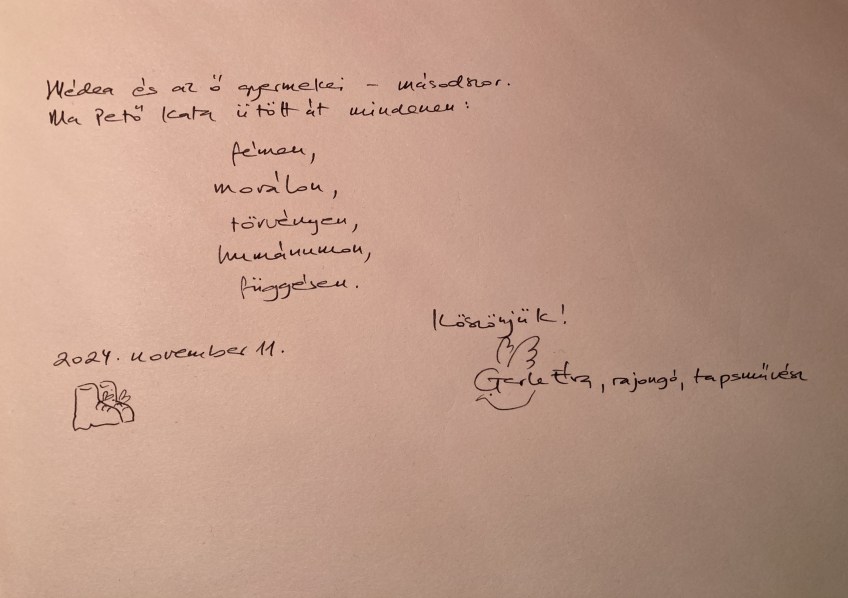 Médea és az ő gyermekei – másodszor.
Ma Pető Kata ütött át mindenen:
fémen,
morálon,
törvényen,
humánumon,
függésen.
Köszönjük!
2024. november 11.
Gerle Éva, rajongó, tapsművész